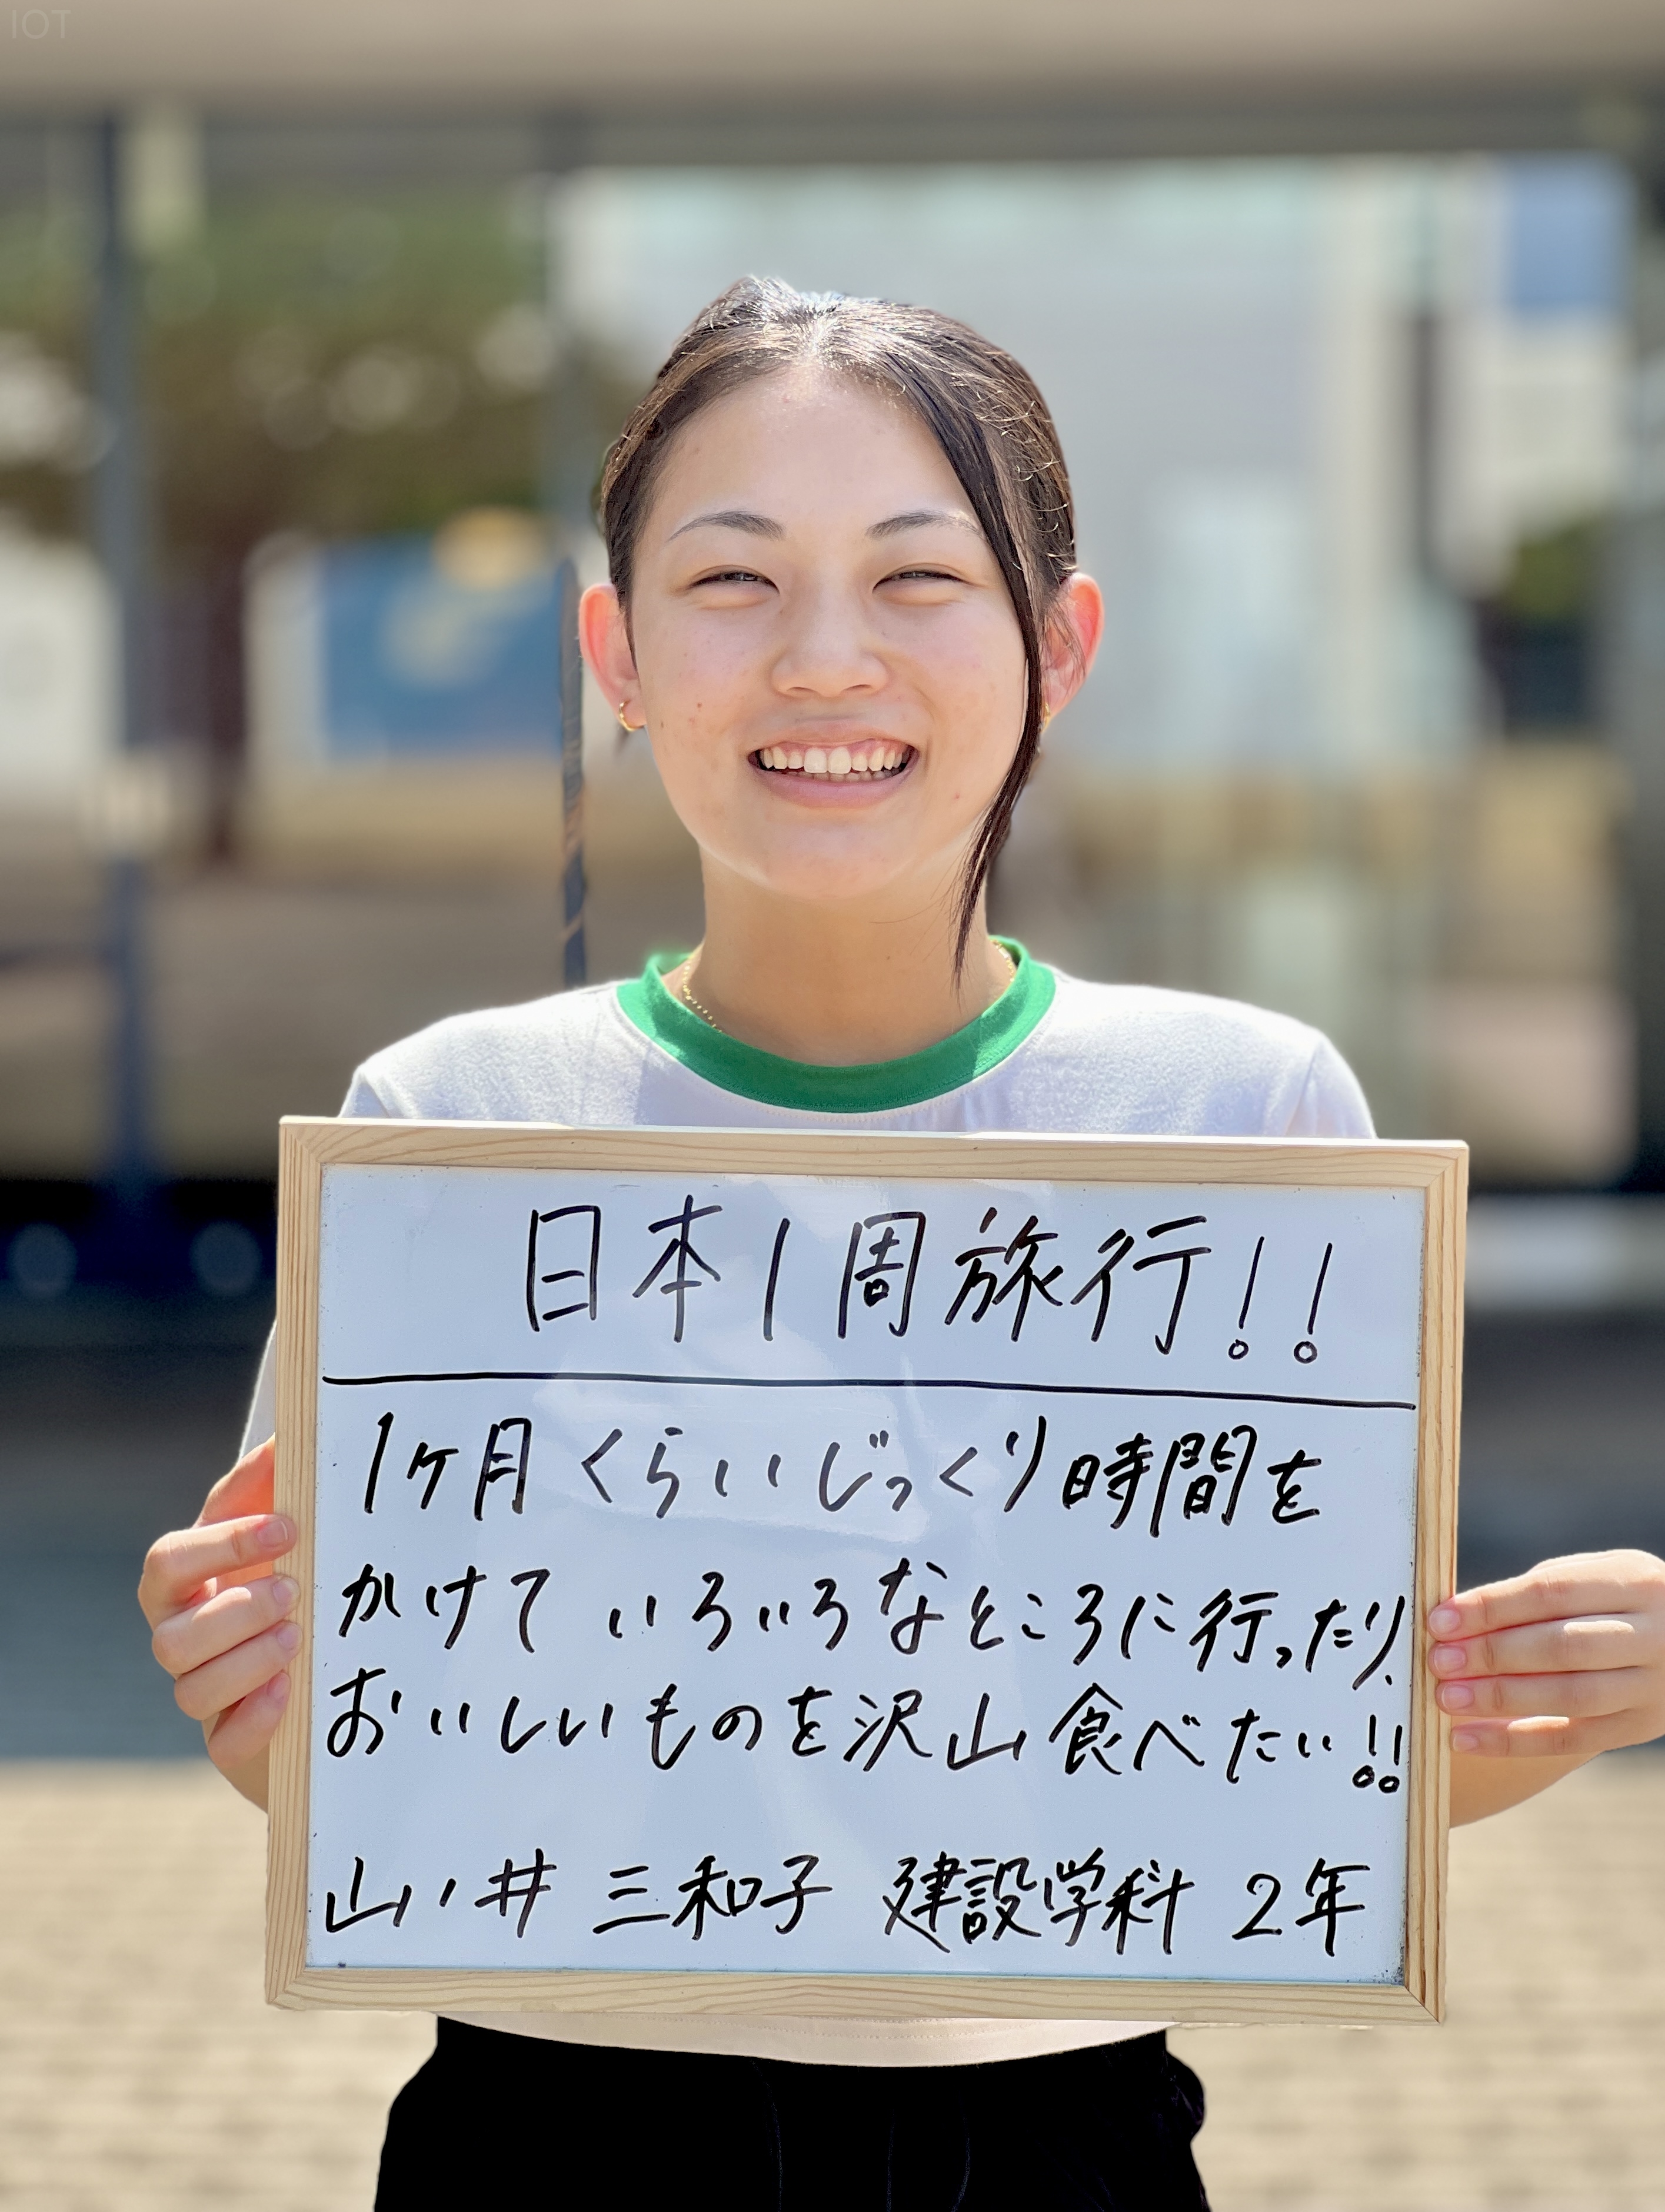 IOT
日本1周旅行!!
1ヶ月くらいじっくり時間を
かけて いろいろなところに行ったり、
おいしいものを沢山食べたい!!
山い井 三和子 建設学科 2年